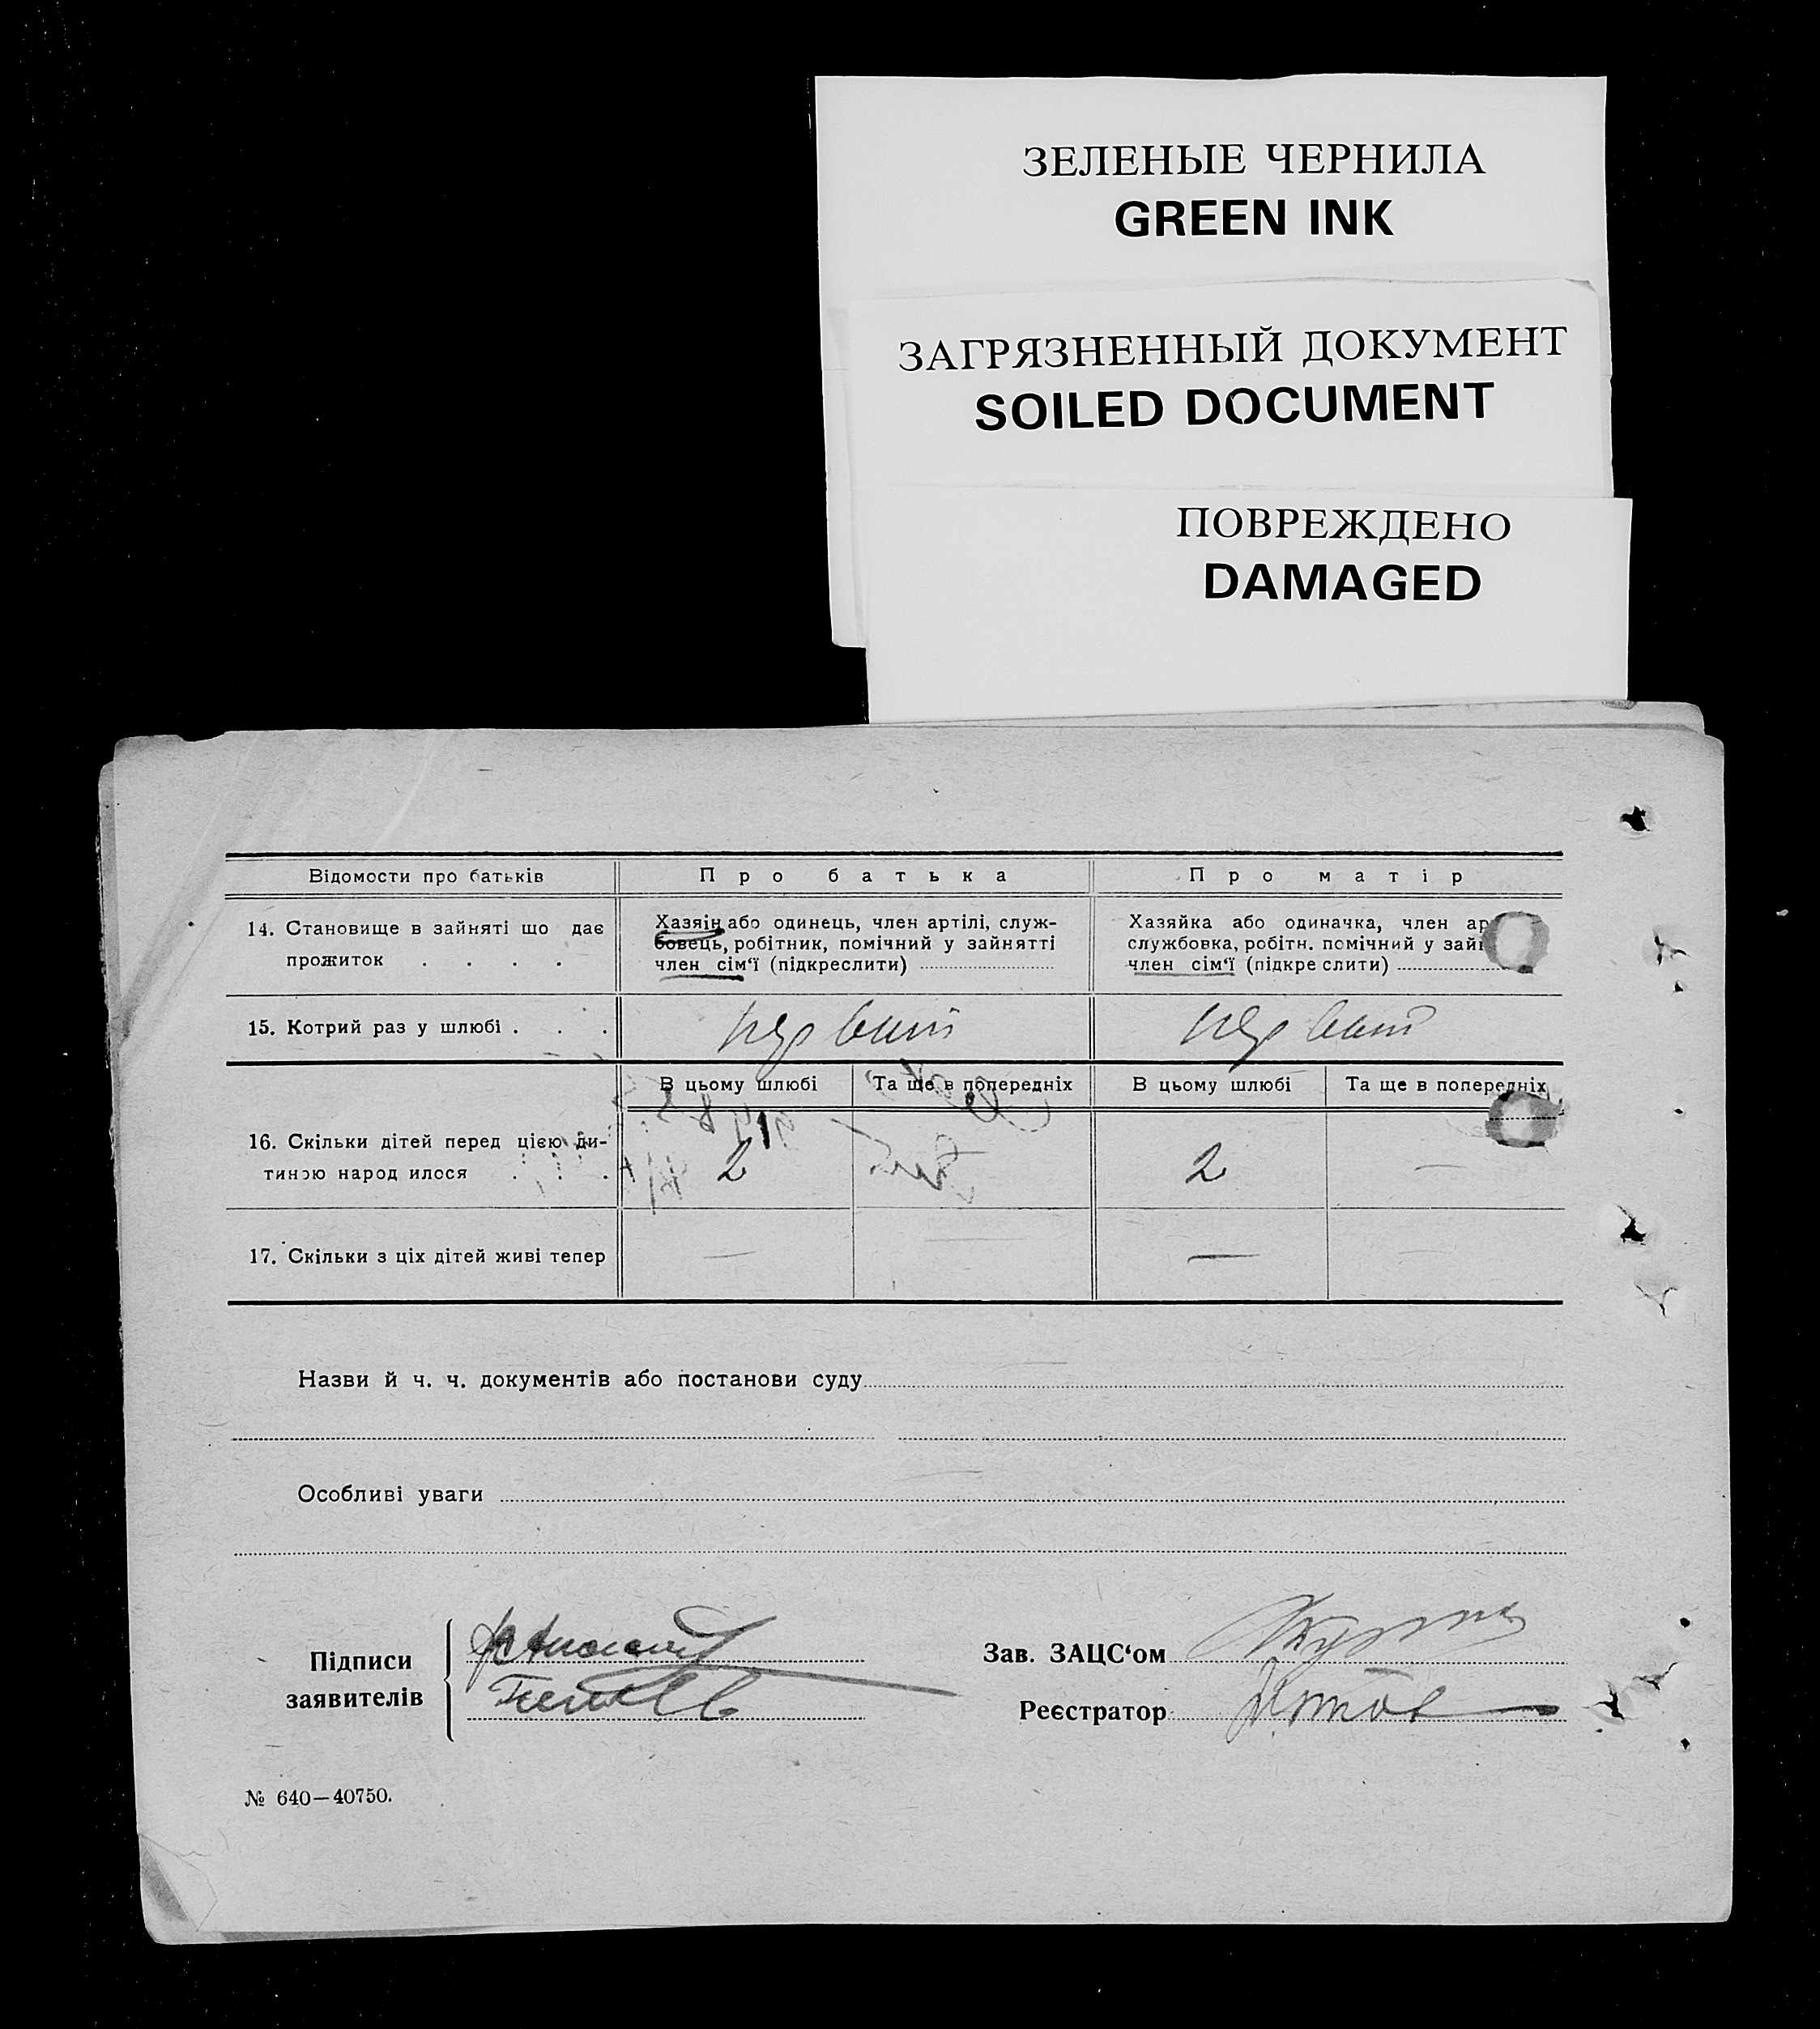 ЗЕЛЕНЫЕ ЧЕРНИЛА
GREEN INK
ЗАГРЯЗНЕННЫЙ ДОКУМЕНТ
SOILED DOCUMENT
ПОВРЕЖДЕНО
DAMAGED
Відомости про батьків
Про батька
Про матір
14. Становище в зайняті що дає
прожиток . . . .
Хазяін або одинець, член артілі, служ-
бовець, робітник, помічний у зайнятті
член сім‘ї (підкреслити)
Хазяйка або одиначка, член ар
службовка, робітн. помічний у зай
член сім‘ї (підкреслити)
15. Котрий раз у шлюбі . . .
первий
первий
В цьому шлюбі
Та ще в попередніх
В цьому шлюбі
Та ще в попередніх
16. Скільки дітей перед цією ди-
тиною народилося . . .
2
2
—
17. Скільки з ціх дітей живі тепер
—
—
Назви й ч. ч. документів або постанови суду
Особливі уваги
Підписи
заявителів
Зав. ЗАЦС‘ом
Реєстратор
№ 640—40750.